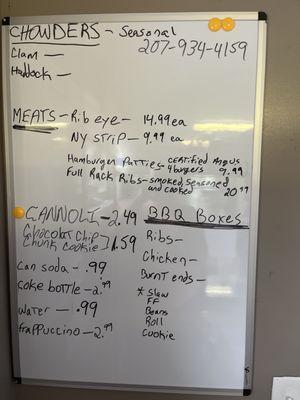 CHOWDERS - Seasonal
207-934-4159
Clam -
Haddock -
MEATS - Rib eye - 14.99 ea
NY Strip - 9.99 ea
Hamburger Patties - Certified Angus
4 burgers 9.99
Full Rack Ribs - smoked, seasoned
and cooked 20.99
CANNOLI - 2.49
Chocolat Chip
Chunk Cookie] 1.59
Can soda - .99
Coke bottle - 2.99
Water - .99
frappuccino - 2.99
BBQ Boxes
Ribs -
Chicken -
Burnt ends -
* Slaw
FF
Beans
Roll
Cookie